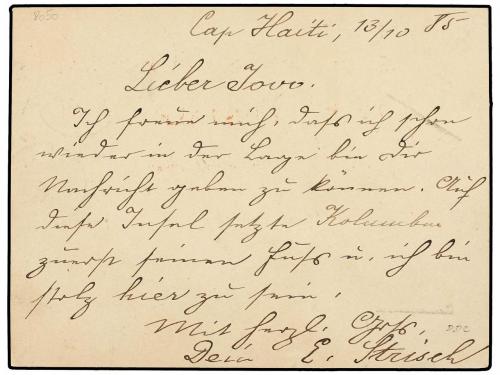 8050
Cap Haiti, 13/10 85
Lieber Jovo.
Ich freue mich, dass ich schon
wieder in der Lage bin Dir
Nachricht geben zu können. Auf
diese Insel setzte Kolumbus
zuerst seinen Fuss u. ich bin
stolz hier zu sein.
Mit herzl. Grß.
Dein E. Strisch